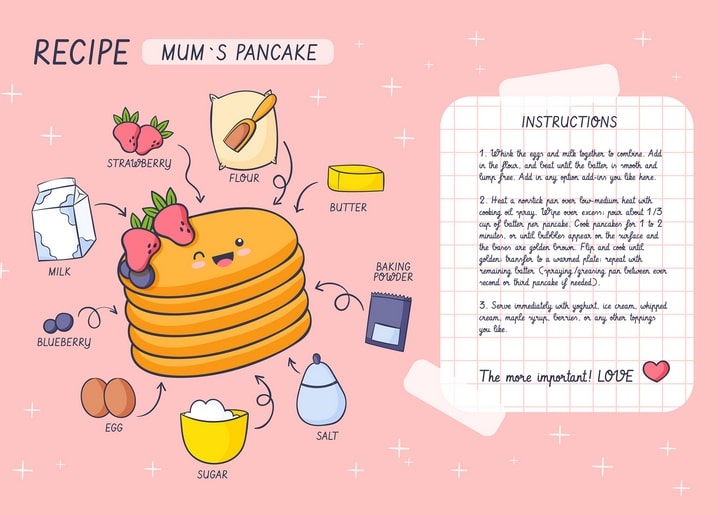 RECIPE
MUM`S PANCAKE
STRAWBERRY
FLOUR
BUTTER
MILK
BAKING
POWDER
BLUEBERRY
EGG
SALT
SUGAR
INSTRUCTIONS
1. Whisk the eggs and milk together to combine. Add
in the flour, and beat until the batter is smooth and
lump free. Add in any option add-ins you like here.
2. Heat a nonstick pan over low-medium heat with
cooking oil spray. Wipe over excess; pour about 1/3
cup of batter per pancake. Cook pancakes for 1 to 2
minutes, or until bubbles appear on the surface and
the bases are golden brown. Flip and cook until
golden; transfer to a warmed plate; repeat with
remaining batter (spraying/greasing pan between ever
second or third pancake if needed).
3. Serve immediately with yoghurt, ice cream, whipped
cream, maple syrup, berries, or any other toppings
you like.
The more important! LOVE